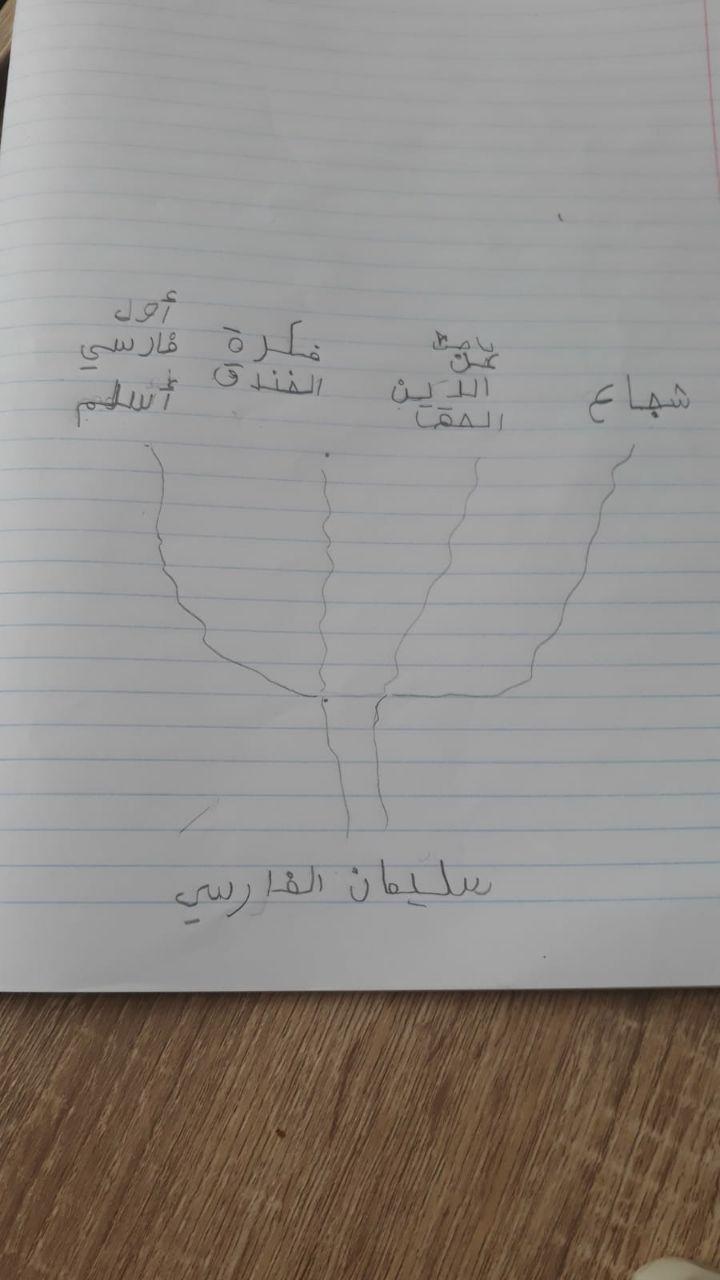 شجاع
باحث
عن
الدين
الحق
فكرة
الخندق
أول
فارسي
أسلم
سليمان الفارسي